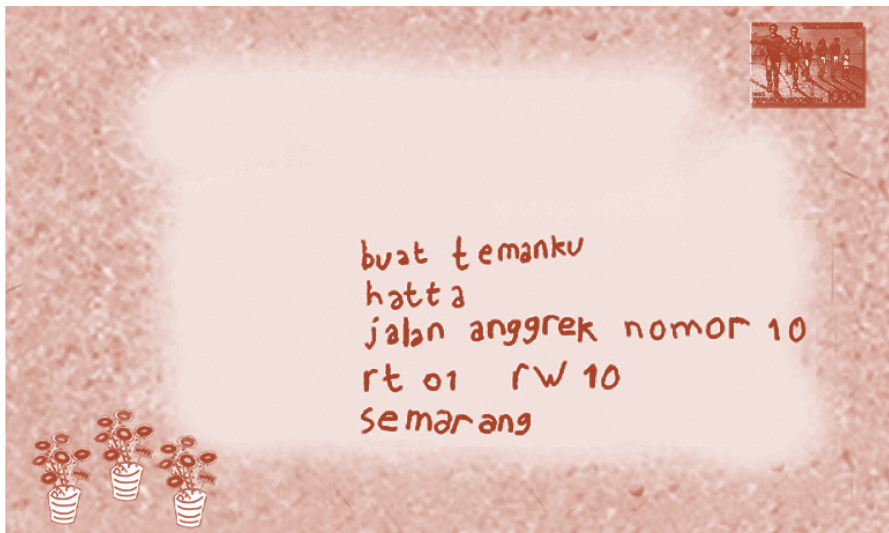 1000
buat temanku
hatta
jalan anggrek nomor 10
rt 01 rw 10
semarang